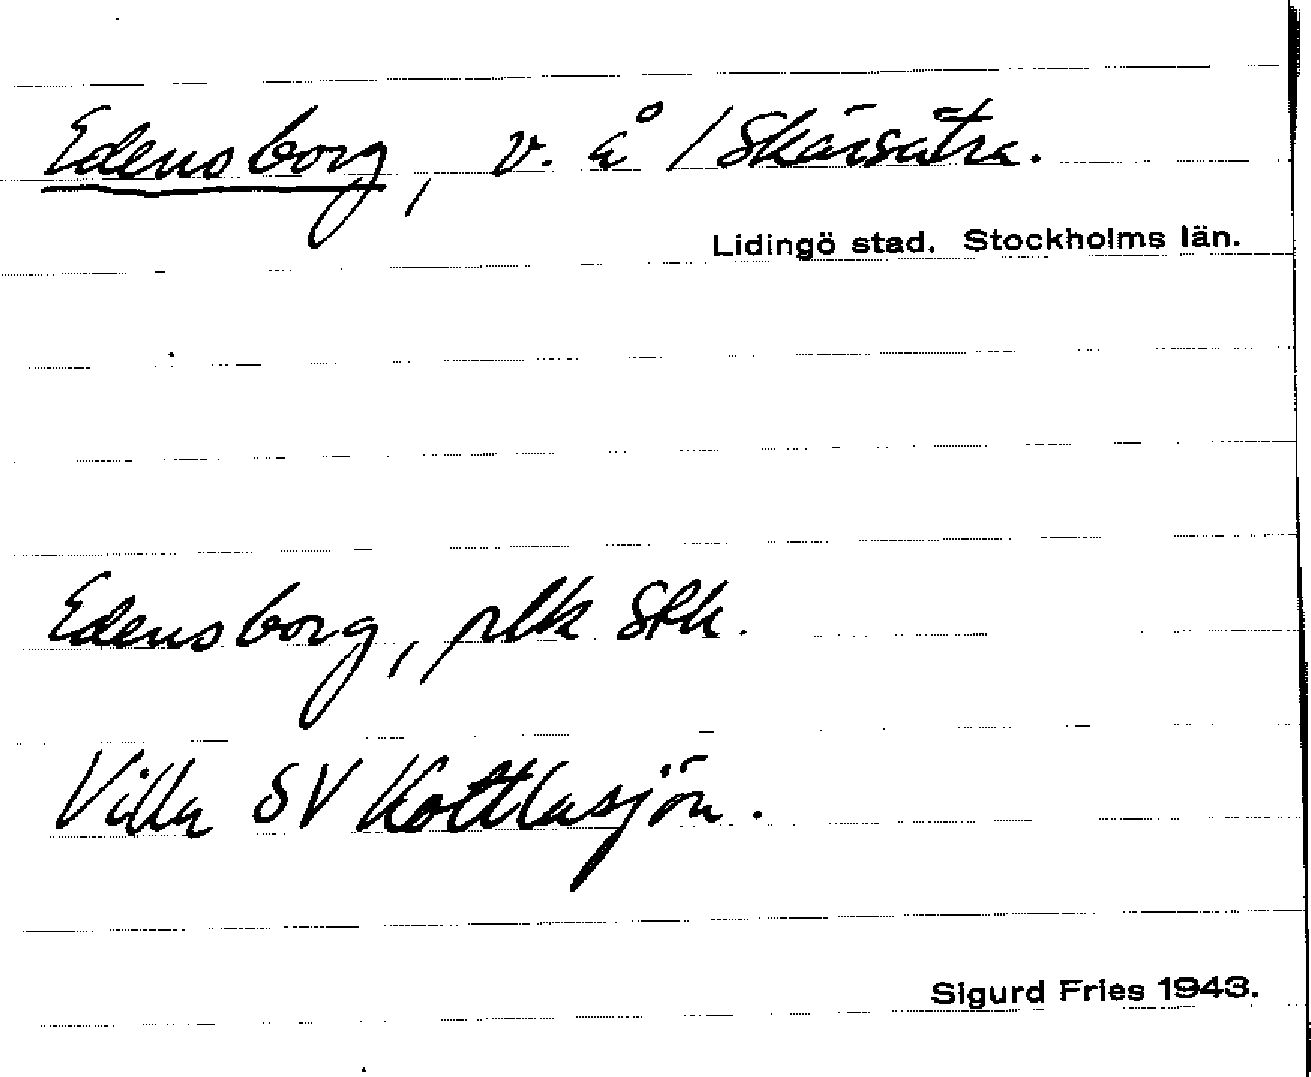 Edensborg, v. å / Skärsätra.
Lidingö stad. Stockholms län.
Edensborg, plk Sthlm.
Villa SV Kottlasjön.
Sigurd Fries 1943.